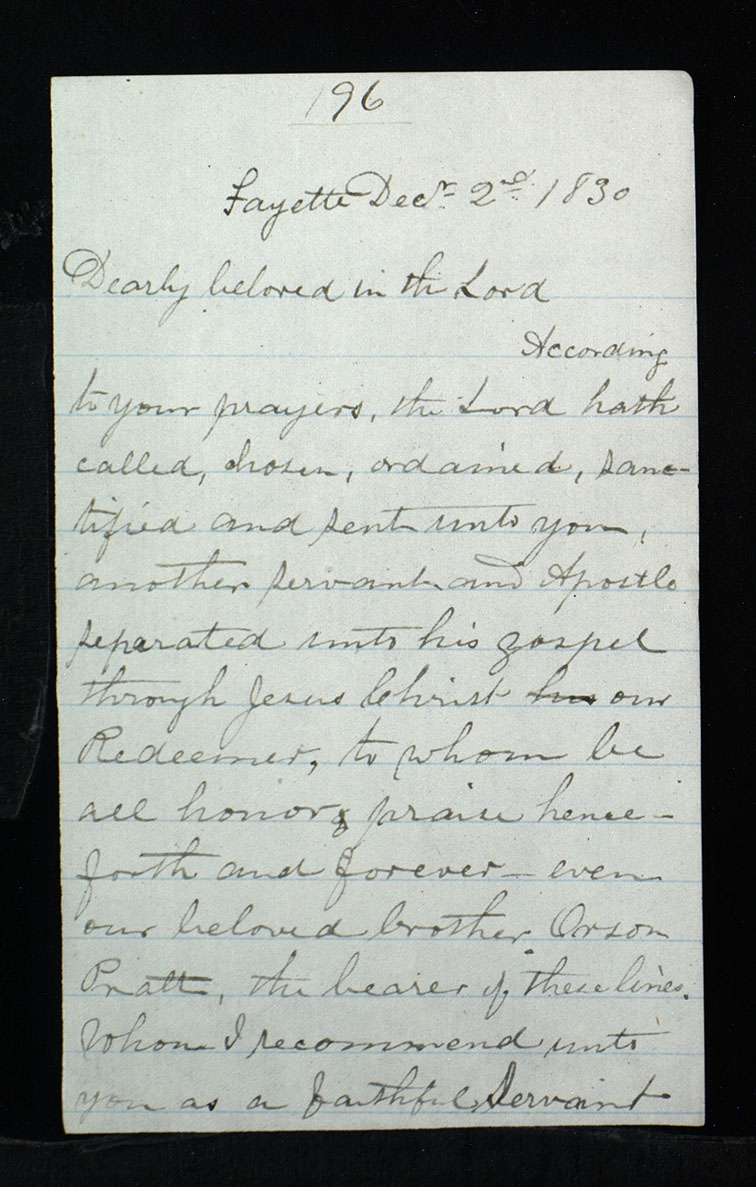 196
Fayette Decr. 2nd. 1830
Dearly beloved in the Lord
According
to your prayers, the Lord hath
called, chosen, ordained, sanc-
tified and sent unto you,
another servant and Apostle
separated unto his gospel
through Jesus Christ his our
Redeemer, to whom be
all honor & praise hence-
forth and forever - even
our beloved brother Orson
Pratt, the bearer of these lines.
Whom I recommend unto
you as a faithful Servant